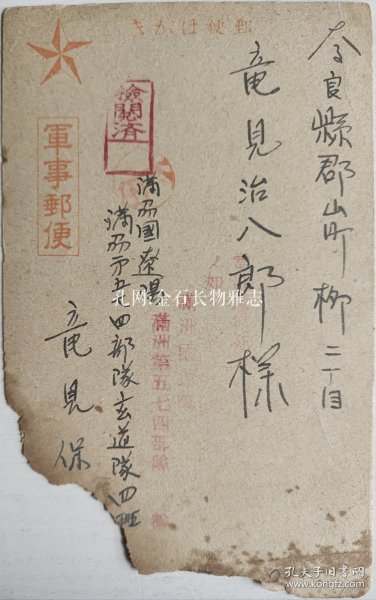 きかは便郵
奈良縣郡山町柳二丁目
竜見治八郎様
檢閲済
軍事郵便
満州國遼陽
満州第五七四部隊玄道隊四班
竜見保
満洲第五七四部隊
孔网:金石长物雅志
孔夫子旧书网